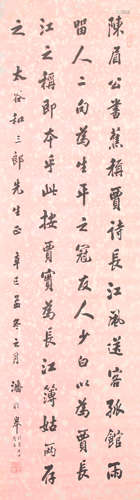 陳眉公書舊稱賈詩長江風送客孤館雨
留人二句為生平之冠友人少白以為賈長
江之稱即本乎此按賈實為長江簿姑两存
之 太谷和三郎先生正 辛巳孟冬之月 潘